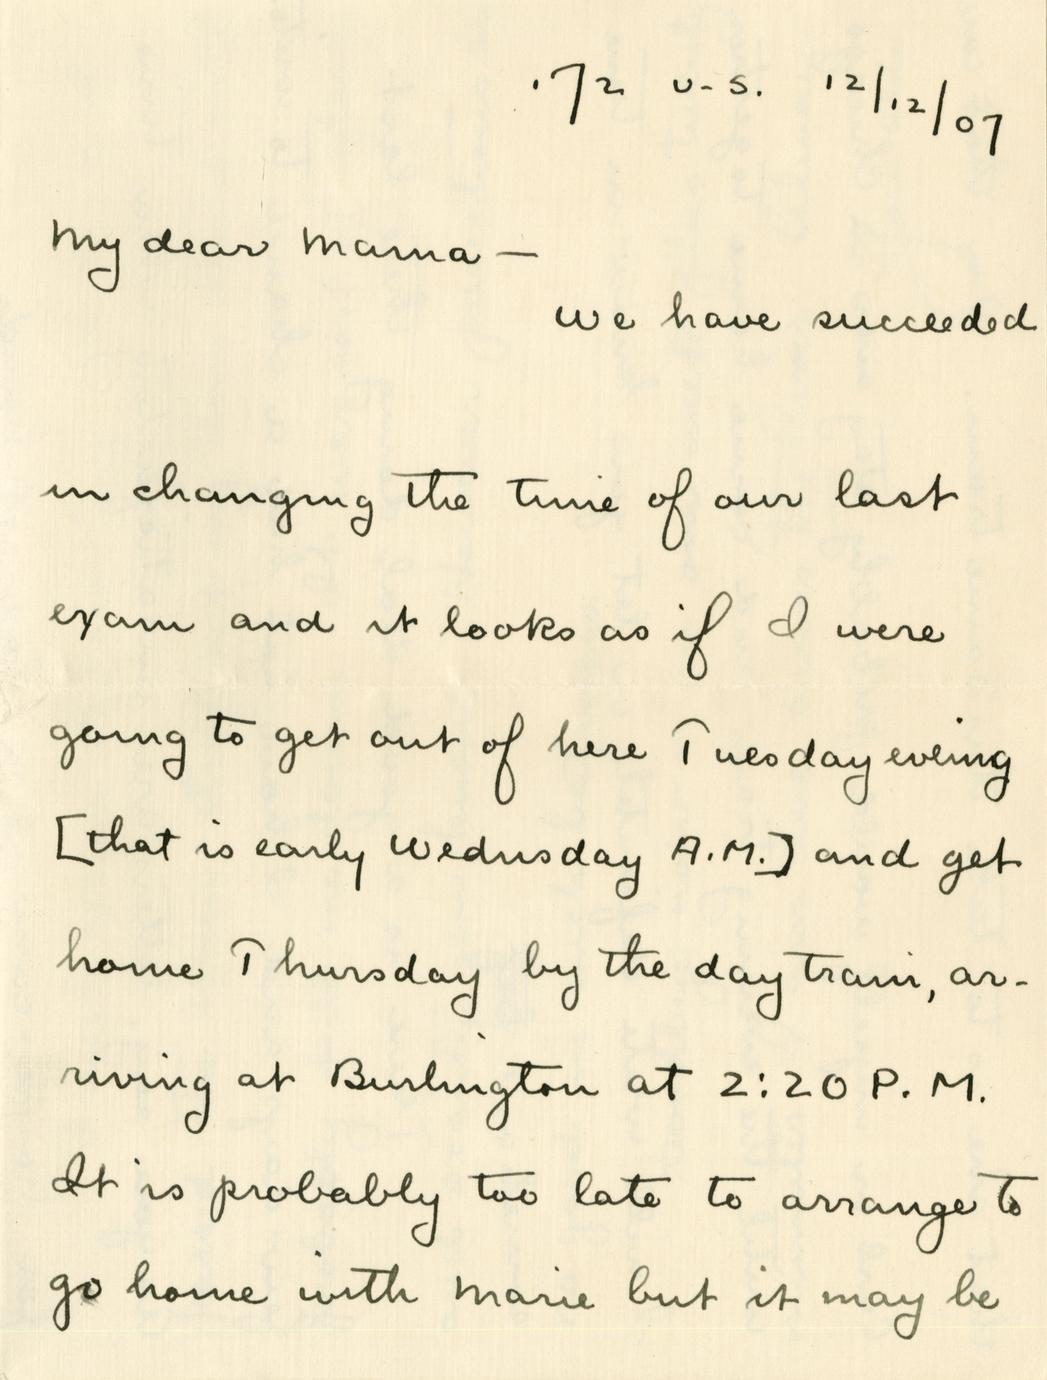 172 U.S. 12/12/07
My dear Mama —
We have succeeded
in changing the time of our last
exam and it looks as if I were
going to get out of here Tuesday eveing
[that is early Wednesday A.M.] and get
home Thursday by the day train, ar-
riving at Burlington at 2:20 P.M.
It is probably too late to arrange to
go home with Marie but it may be